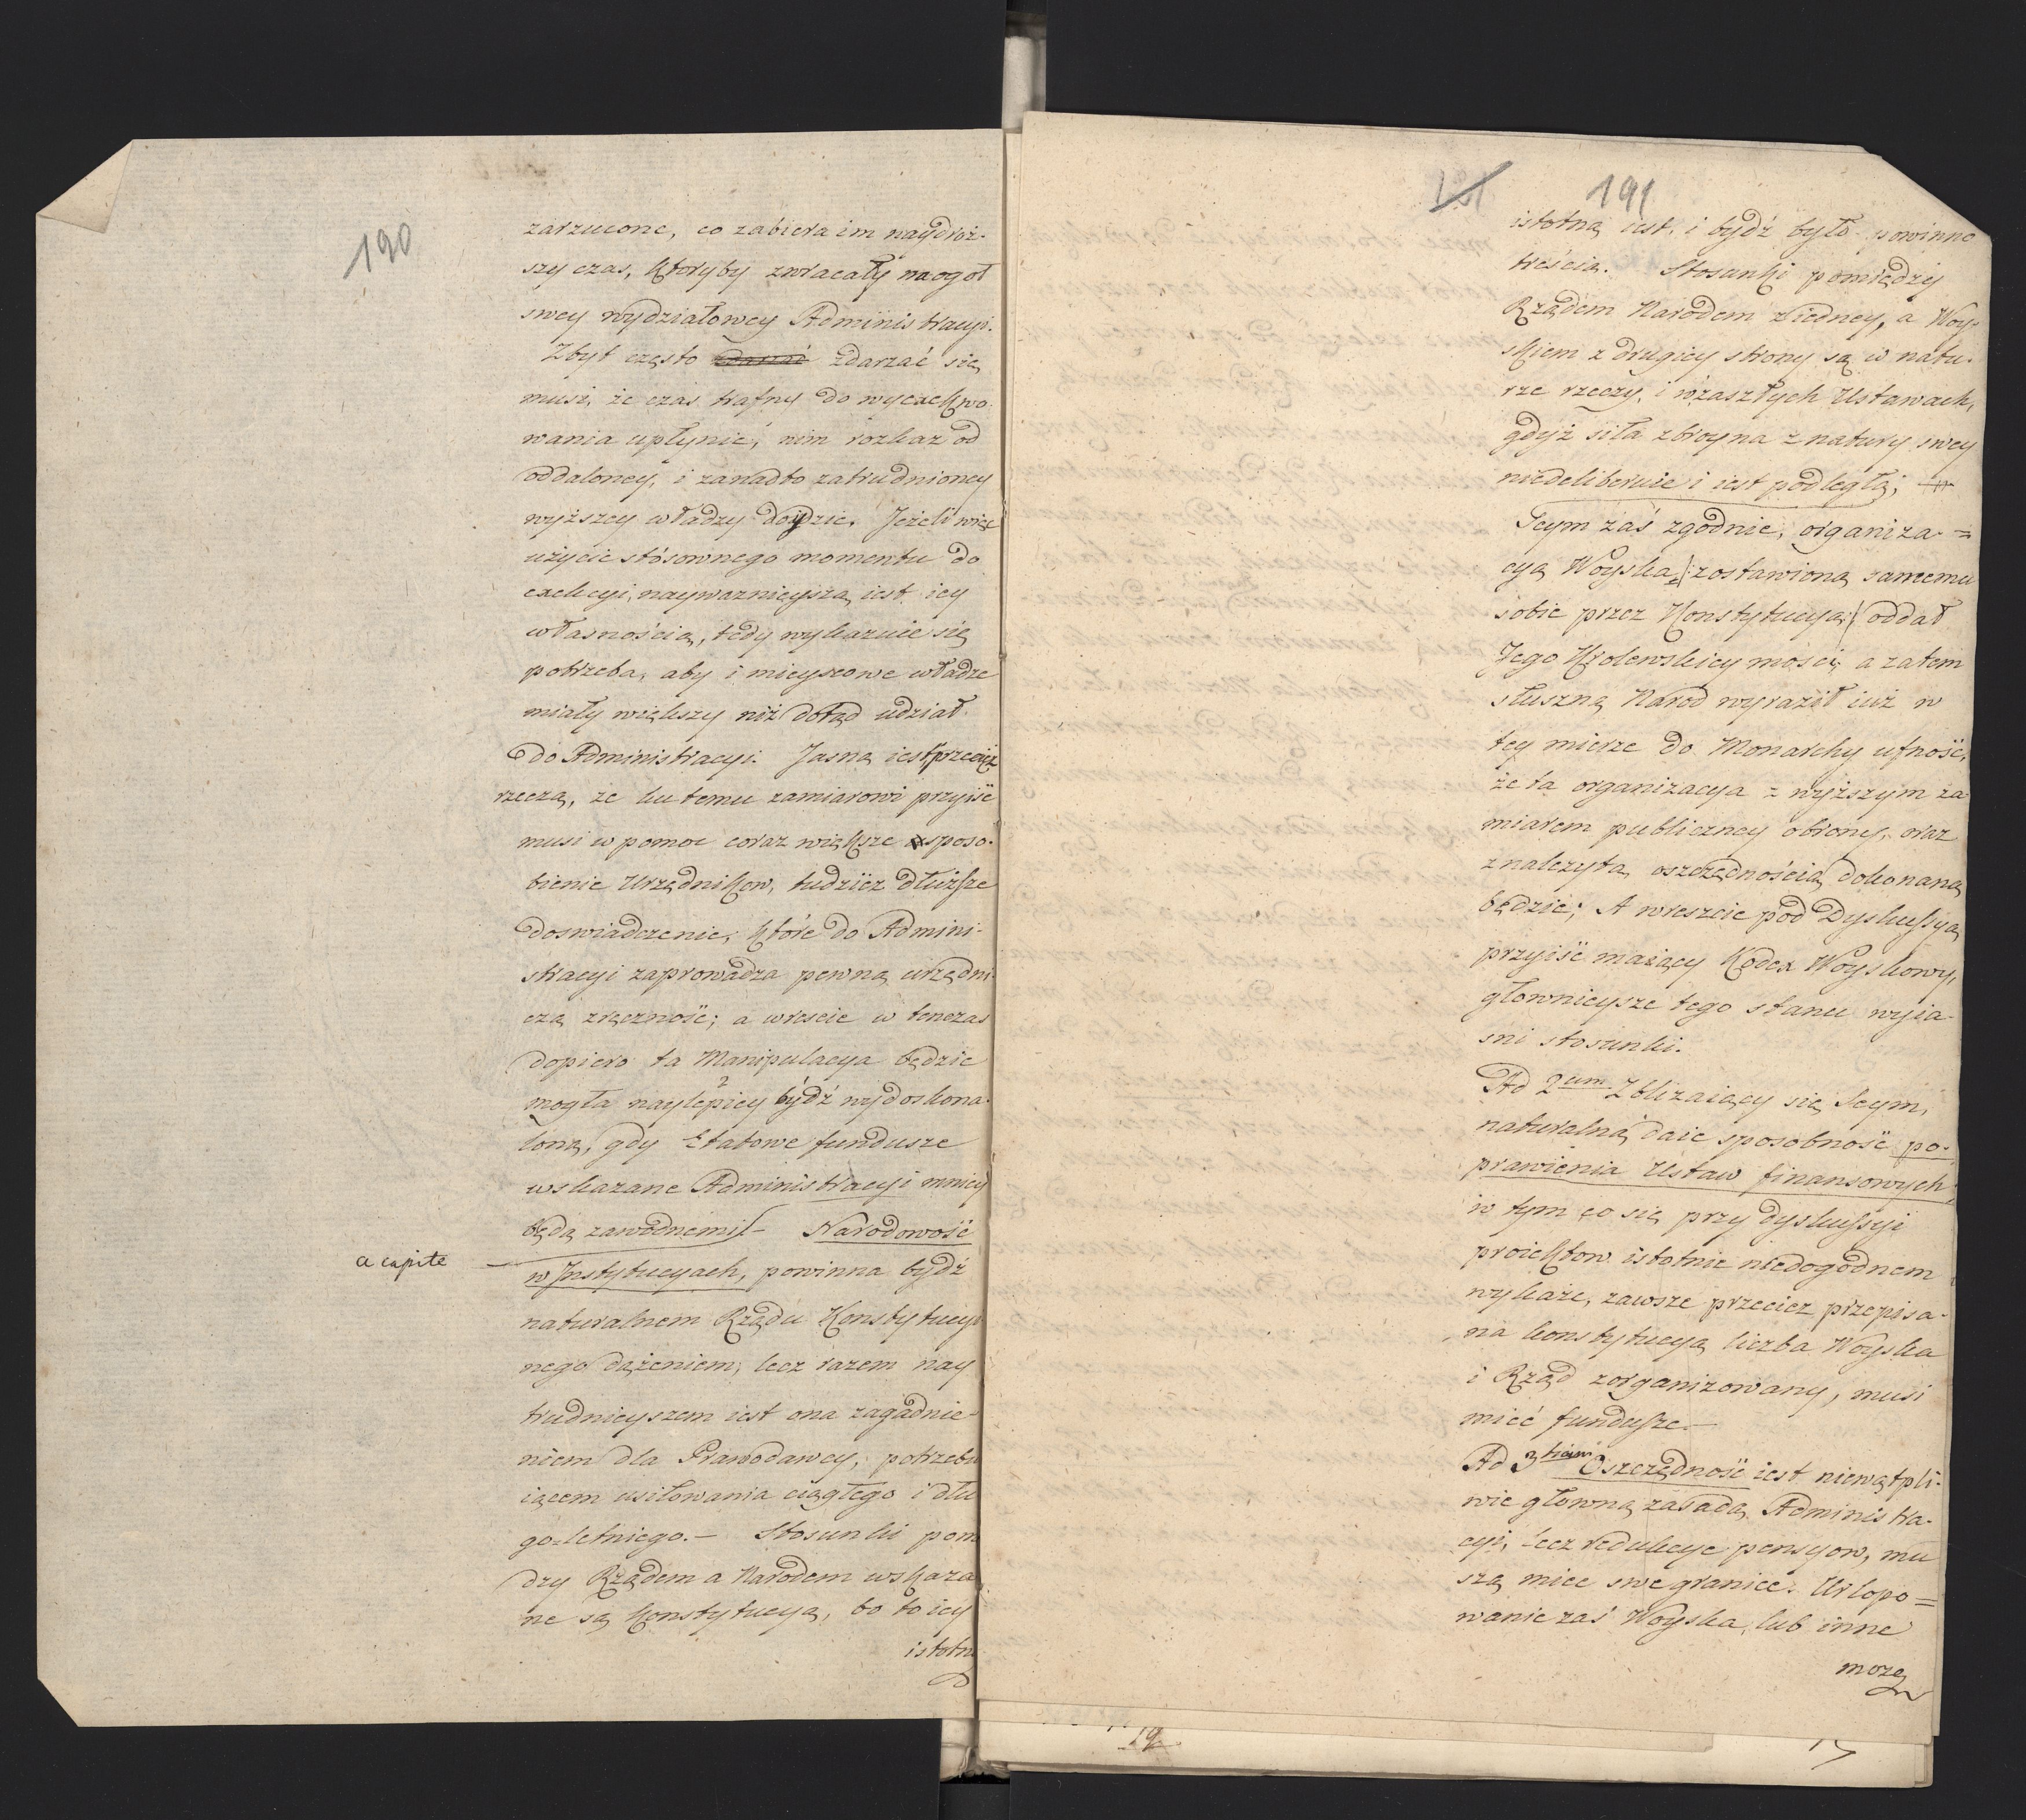 190
zarzucone, co zabiera im naydroż-
szy czas, ktoryby zwracały na ogoł
swey wydziałowey Administracyi.
Zbyt często zdarzać się
musi, że czas trafny do wyexekwo-
wania upłynie, nim rozkaz od
oddaloney, i zanadto zatrudnioney
wyższey władzy doydzie. Jeżeli więc
użycie stósownego momentu do
exekucyi, naywaznieyszą iest iey
własnością, tedy wykazuie się
potrzeba, aby i mieyscowe władze
miały większy niż dotąd udział
do Administracyi. Jasną iest przecięż
rzeczą, ze ku temu zamiarowi przyiść
musi w pomoc coraz większe usposo-
bienie Urzędnikow, tudzież dłuższe
doswiadczenie, które do Admini-
stracyi zaprowadza pewną urzędni-
czą zręczność; a wrescie w tenczas
dopiero ta Manipulacya będzie
mogła naylepiey bydź wydoskona-
loną, gdy Etatowe fundusze
wskazane Administracyi mniey
będą zawodnemi. – Narodowość
a capite
w Instytucyach, powinna bydź
naturalnem Rządu Konstytucyi-
nego dążeniem, lecz razem nay
trudnieyszem iest ona zagadnie-
niem dla Prawodawcy, potrzebu
iącem usiłowania ciągłego i dłu
go-letniego. – Stosunki pom
dzy Rządem a Narodem wskaza
ne są Konstytucyą, bo to iey
istotn
191
istotną iest, i bydź było powinno
treścią. Stosunki pomiędzy
Rządem Narodem z iedney, a Woy-
skiem z drugiey strony są w natu-
rze rzeczy, i w zaszłych Ustawach,
gdyż siła zbroyna z natury swey
niedeliberuie i iest podległą;
Seym zaś zgodnie, organiza-
cyą Woyska /: zostawioną samemu
sobie przez Konstytucyą :/ oddał
Jego Krolewskiey mości, a zatem
słuszną Narod wyraził iuż w
tey mierze do Monarchy ufność,
że ta organizacya z wyższym za
miarem publiczney obrony, oraz
z należytą oszczędnością dokonaną
będzie; A wreszcie pod Dyskussyą
przyiść maiący Kodex Woyskowy,
głownieysze tego stanu wyia-
sni stosunki.
Ad 2um Zbliżaiący się Seym,
naturalną daie sposobność po-
prawienia Ustaw finansowych
w tym co się przy dyskussyi
proiektow istotnie niedogodnem
wykaże, zawsze przecież przepisa-
na konstytucyą liczba Woyska
i Rząd zorganizowany, musi
mieć fundusze. –
Ad 3tium Oszczędność iest niewątpli-
wie głowną zasadą Administra-
cyi, lecz redukcye pensyow, mu
szą miec swe granice. Urlopo=
wanie zaś Woyska, lub inne
mogą
19